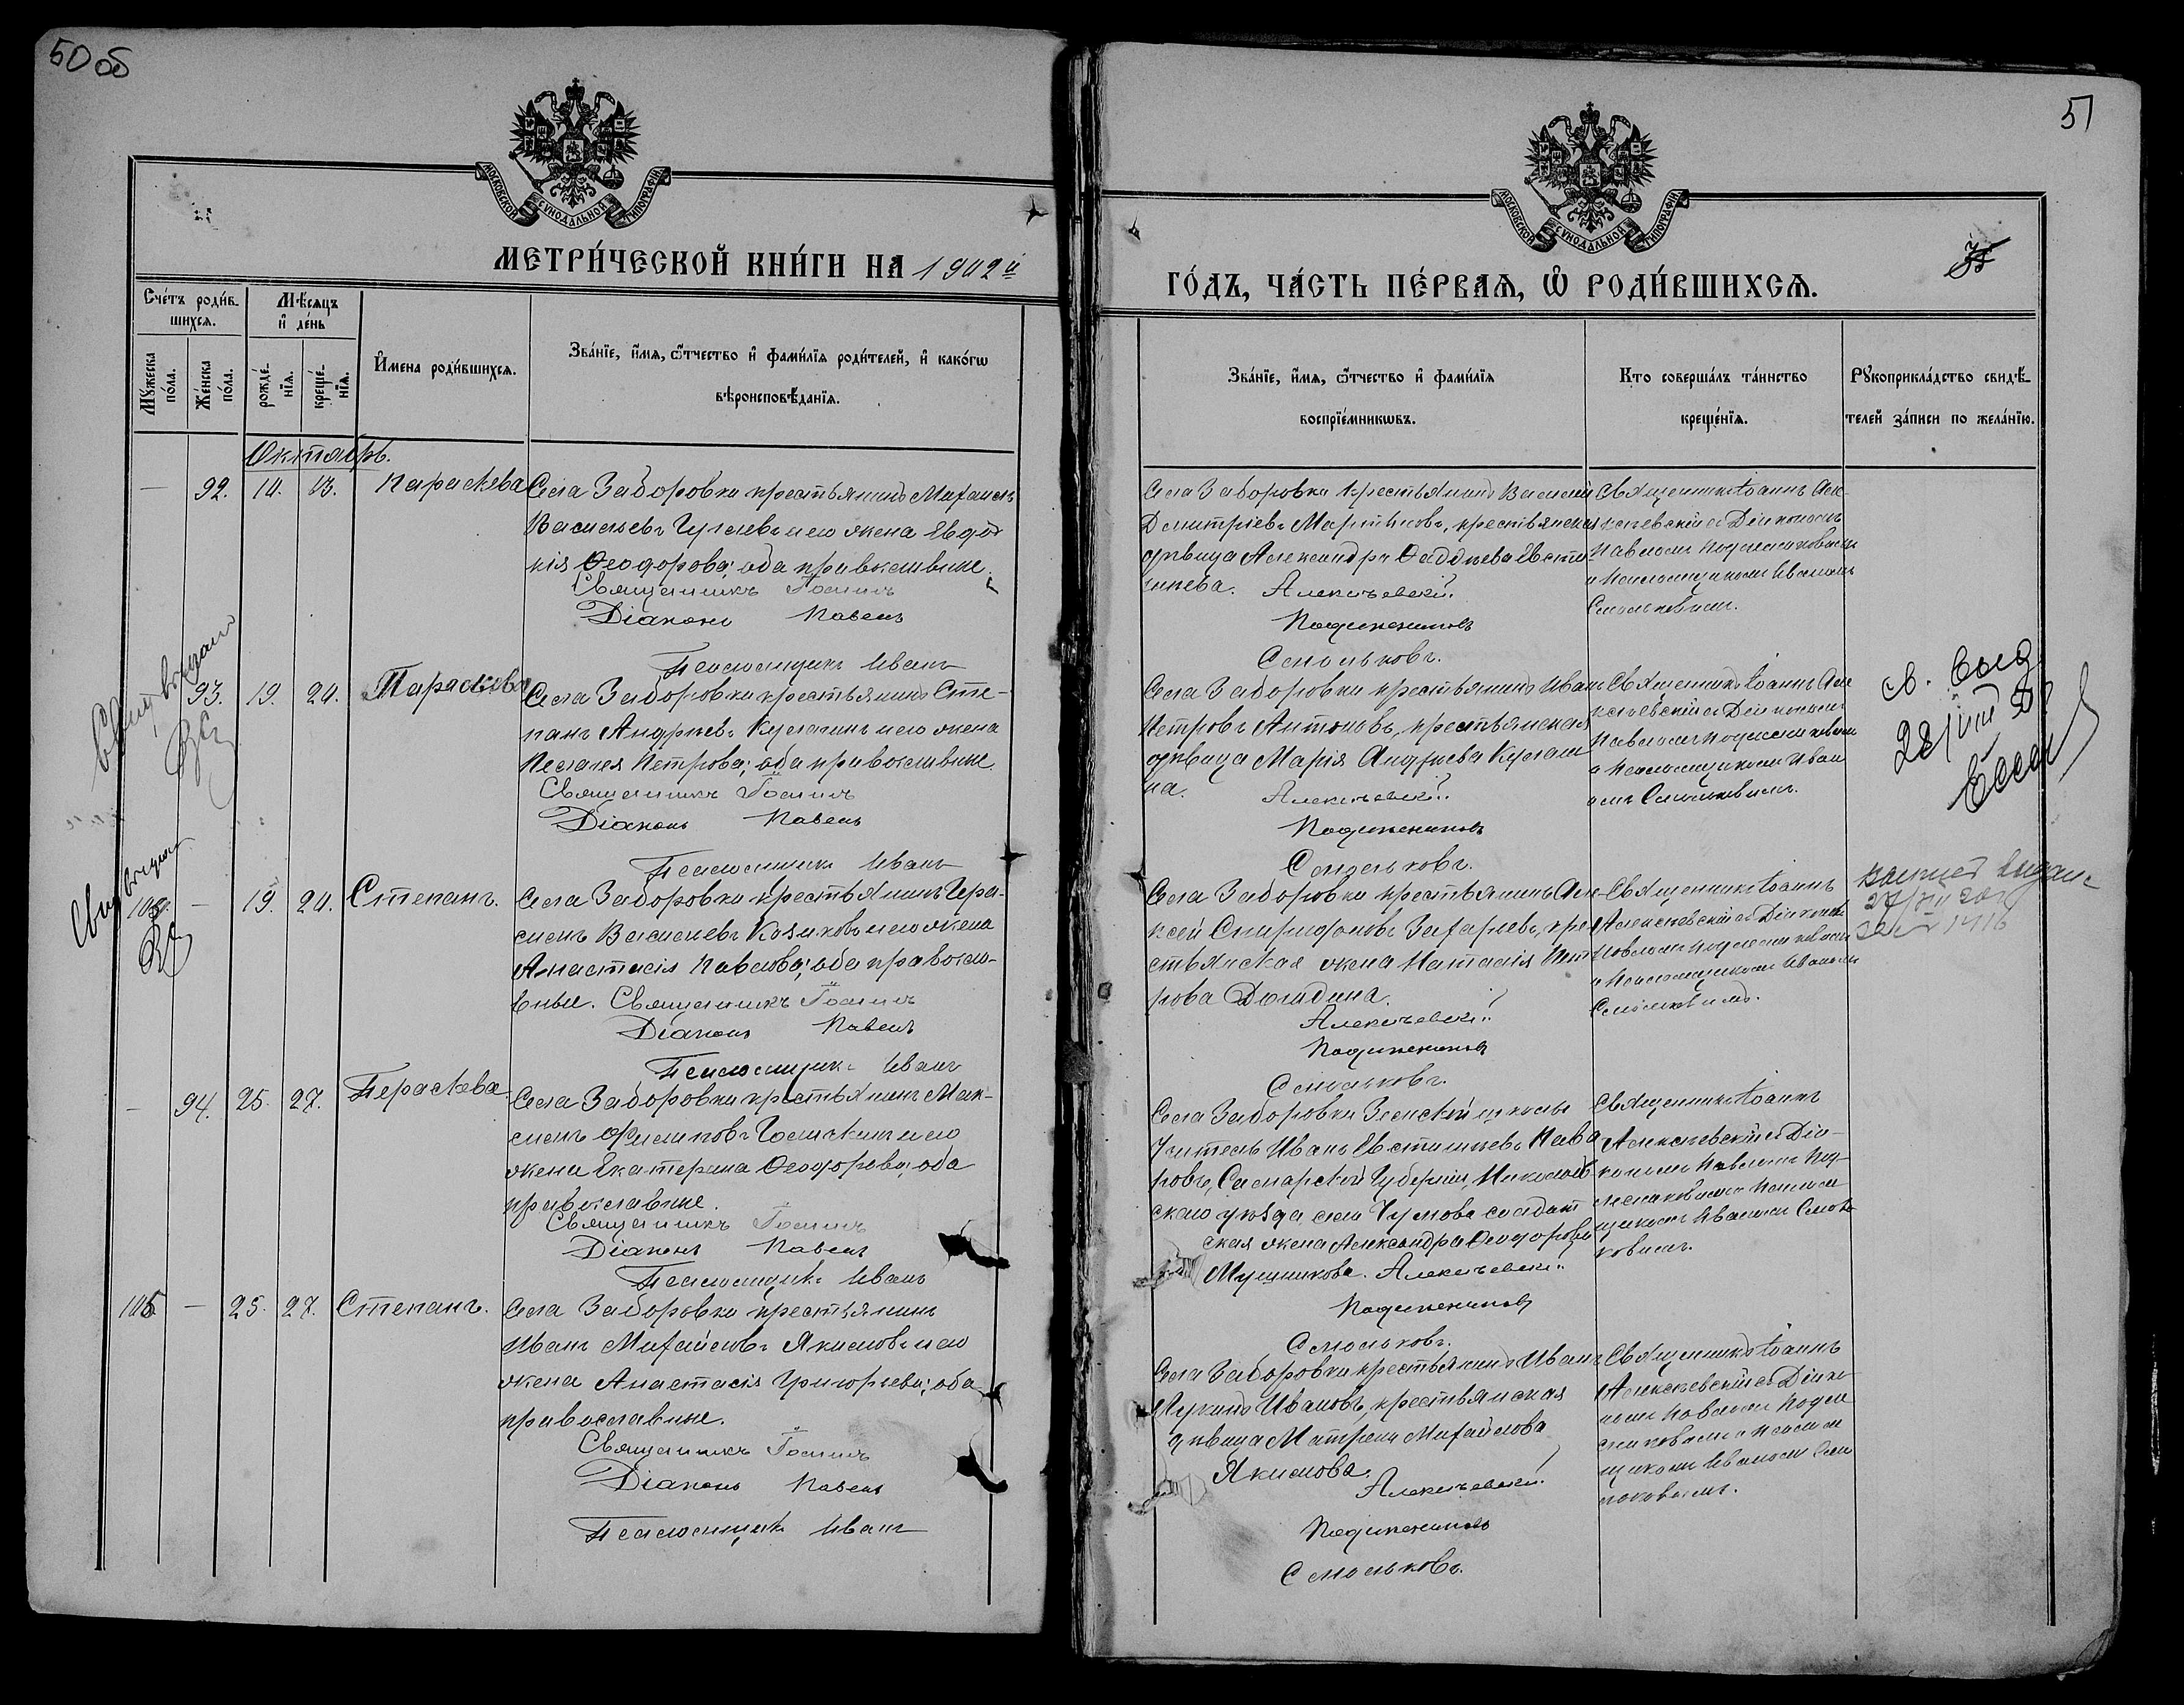 50 об
МОСКОВСКОЙ СѴНОДАЛЬНОЙ ТИПОГРАФІИ
МЕТРИ́ЧЕСКОЙ КНИ́ГИ НА 1902й
Сче́тъ роди́в-
шихсѧ.
Мѣ́сѧцъ
и҆ де́нь
Мꙋ́жеска
по́ла.
Же́нска
по́ла.
рожде́-
нїѧ.
креще́-
нїѧ.
И҆мена роди́вшихсѧ.
Зва́нїе, и҆́мѧ, ѻ҆́тчество и҆ фами́лїѧ роди́телей, и҆ како́гѡ
вѣроисповѣ́данїѧ.
Октябрь.
— 92. 14. 13. Параскева
Села Заборовки крестьянинъ Михаилъ
Васильевъ и его жена Евдо-
кія Ѳеодорова; оба православные.
Священникъ Іоаннъ
Діаконъ Павелъ
Псаломщикъ Иванъ
93. 19. 20. Параскева
Села Заборовки крестьянинъ Сте-
панъ Андреевъ Кулагинъ и его жена
Пелагея Петрова; оба православные.
Священникъ Іоаннъ
Діаконъ Павелъ
Псаломщикъ Иванъ
— 19. 20. Степанъ.
Села Заборовки крестьянинъ Гера-
симъ Васильевъ Козиковъ и его жена
Анастасія Павлова; оба правосла-
вные. Священникъ Іоаннъ
Діаконъ Павелъ
Псаломщикъ Иванъ
— 94. 25. 27. Параскева
Села Заборовки крестьянинъ Мак-
симъ Филиповъ и его
жена Екатерина Ѳеодорова; оба
православные.
Священникъ Іоаннъ
Діаконъ Павелъ
Псаломщикъ Иванъ
— 25. 27. Степанъ.
Села Заборовки крестьянинъ
Иванъ Михайловъ Якимовъ и его
жена Анастасія Григорьева; оба
православные.
Священникъ Іоаннъ
Діаконъ Павелъ
Псаломщикъ Иванъ
51
МОСКОВСКОЙ СѴНОДАЛЬНОЙ ТИПОГРАФІИ
ГО́ДЪ, ЧА́СТЬ ПЕ́РВАѦ, Ѡ҆ РОДИ́ВШИХСѦ.
Зва́нїе, и҆́мѧ, ѻ҆́тчество и҆ фами́лїѧ
воспрїе́мникѡвъ.
Кто соверша́лъ та́инство
креще́нїѧ.
Рꙋкоприкла́дство свидѣ́-
телей за́писи по жела́нїю.
Села Заборовки крестьянинъ Василій
Дмитріевъ Мартыновъ, крестьянская
дѣвица Александра Ѳаддѣева Евсти-
гнѣева. Алексѣевскій
Подлѣсниковъ
Смольковъ.
Священникъ Іоаннъ Але-
ксѣевскій съ Діакономъ
Павломъ Подлѣсниковымъ
и Псаломщикомъ Иваномъ
Смольковымъ.
Села Заборовки крестьянинъ Иванъ
Петровъ Антоновъ, крестьянская
дѣвица Марія Андреева Кулаги-
на. Алексѣевскій
Подлѣсниковъ
Смольковъ.
Священникъ Іоаннъ Але
ксѣевскій съ Діакономъ
Павломъ Подлѣсниковымъ
и Псаломщикомъ Иван
омъ Смольковымъ.
св. выд
Села Заборовки крестьянинъ Але-
ксѣй Спиридоновъ Захаревъ, кре-
стьянская жена Наталія Пет
рова
Алексѣевскій
Подлѣсниковъ
Смольковъ.
Священникъ Іоаннъ
Алексѣевскій съ Діаконом
Павломъ Подлѣсниковымъ
и Псаломщикомъ Иваномъ
Смольковымъ.
Села Заборовки Земской школы
Учитель Иванъ Евстигнѣевъ
Самарской Губерніи, Николаев
скаго уѣзда села солдат
ская жена Александра Ѳеодорова
Алексѣевскій
Подлѣсниковъ
Смольковъ.
Священникъ Іоаннъ
Алексѣевскій съ Діа-
кономъ Павломъ Под-
лѣсниковымъ и Псалом
щикомъ Иваномъ Смоль
ковымъ.
Села Заборовки крестьянинъ Иванъ
Лукинъ Ивановъ, крестьянская
дѣвица Матрена Михайлова
Якимова.
Алексѣевскій
Подлѣсниковъ
Смольковъ.
Священникъ Іоаннъ
Алексѣевскій съ Діако
номъ Павломъ Подлѣ
сниковымъ и Псалом
щикомъ Иваномъ Смо
льковымъ.